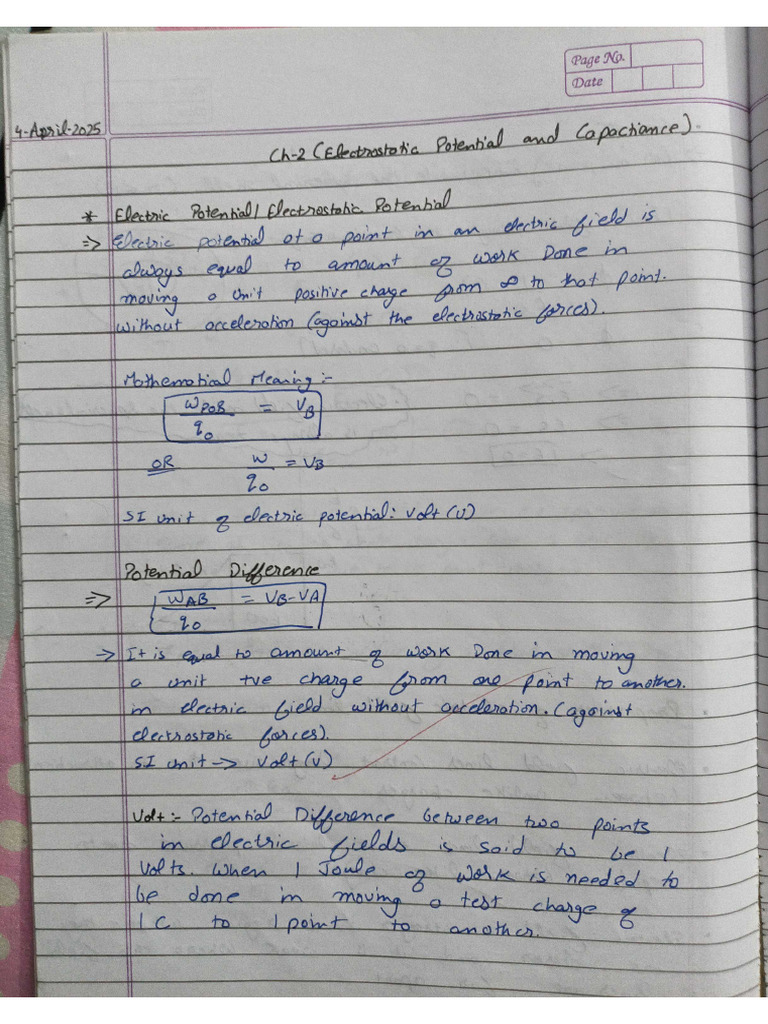 Page No.
Date
4-April-2025
Ch-2 (Electrostatic Potential and Capactiance).
* Electric Potential / Electrostatic Potential
=> Electric potential at a point in an electric field is
always equal to amount of work Done in
moving a unit positive charge from ∞ to that point.
without acceleration (against the electrostatic forces).
Mathematical Meaning :-
W∞B/q₀ = VB
OR W/q₀ = VB
SI unit of electric potential: Volt (V)
Potential Difference
=> WAB/q₀ = VB-VA
→ It is equal to amount of work Done in moving
a unit +ve charge from one point to another.
in electric field without acceleration. (against
electrostatic forces).
SI unit → Volt (V)
Volt :- Potential Difference between two points
in electric fields is said to be 1
Volts. When 1 Joule of work is needed to
be done in moving a test charge of
1 C to 1 point to another.